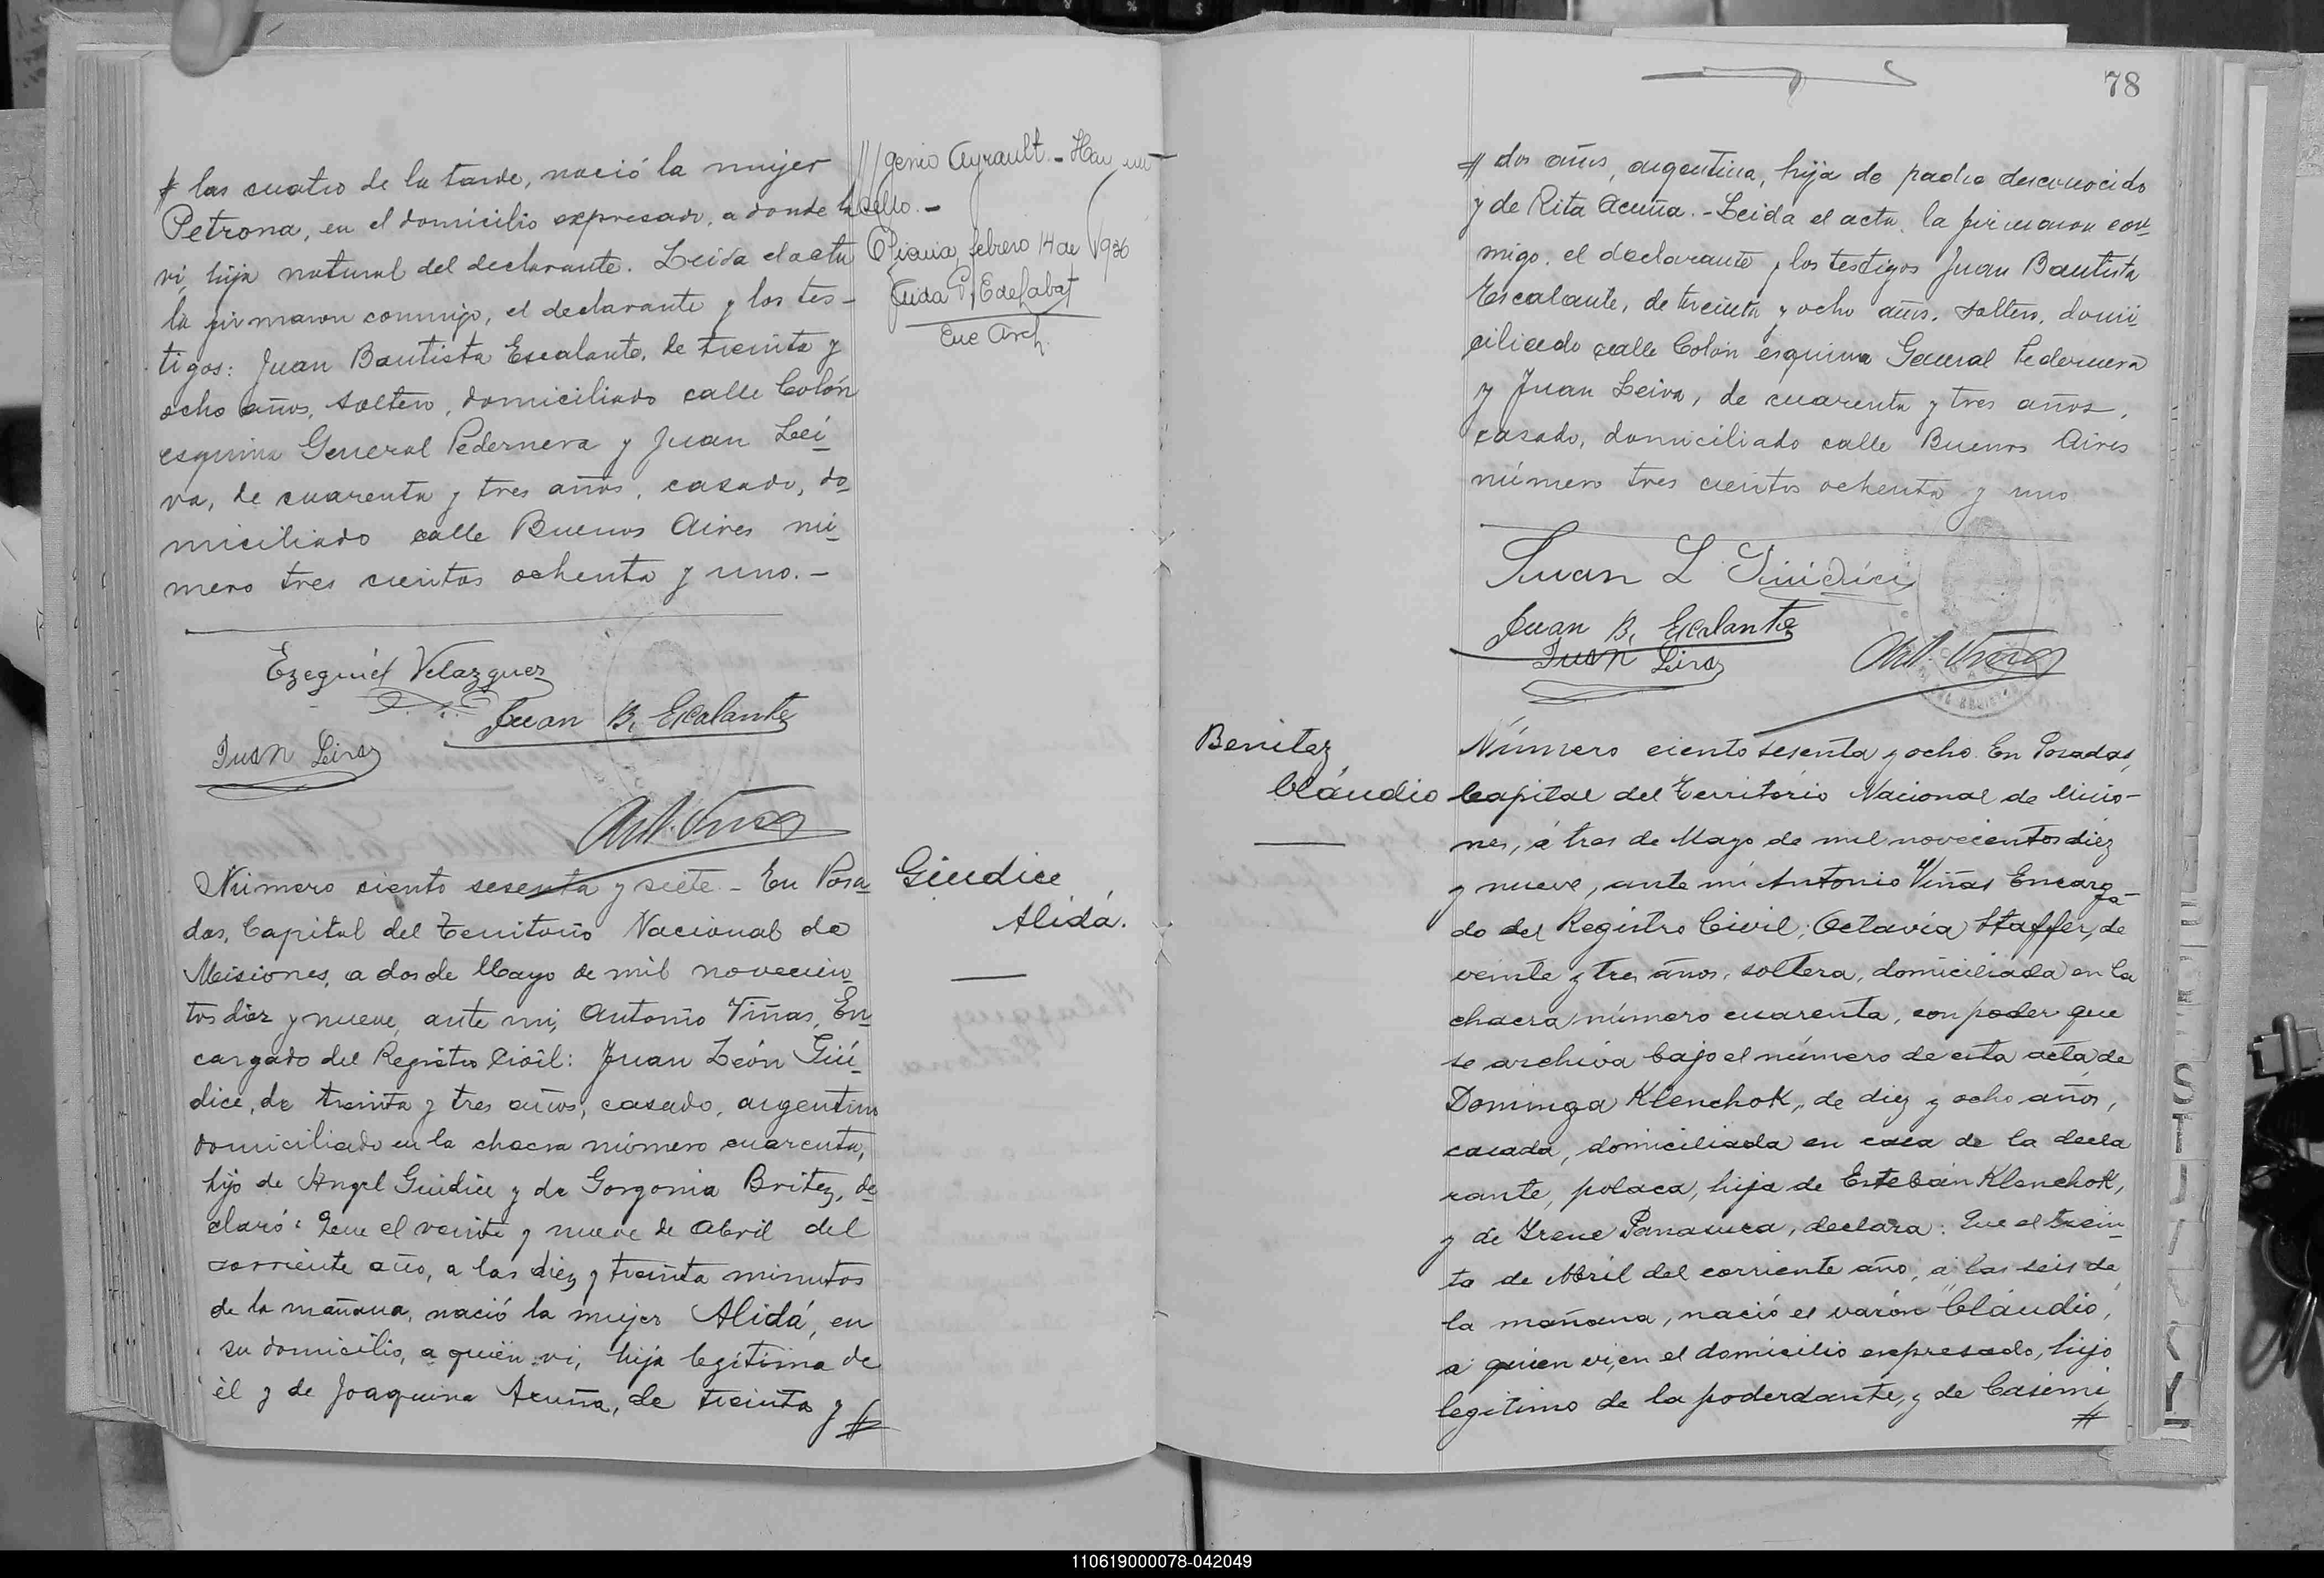 # las cuatro de la tarde, nació la mujer
Petrona, en el domicilio expresado, a donde la
vi, hija natural del declarante. Leida el acta
la firmaron conmigo, el declarante y los tes-
tigos: Juan Bautista Escalante, de treinta y
ocho años, soltero, domiciliado calle Colón
esquina General Pedernera y Juan Lei-
va, de cuarenta y tres años, casado, do-
miciliado calle Buenos Aires nú-
mero tres cientos ochenta y uno.-
Ezequiel Velazquez
Juan B. Escalante
Juan Leiva
Ant. Viñas
genio Ayrault.- Hay un
sello.-
febrero 14 de 1936
Enc Arch.
Giudice
Alidá.
Número ciento sesenta y siete - En Posa-
das, Capital del Territorio Nacional de
Misiones, a dos de Mayo de mil novecien-
tos diez y nueve, ante mi, Antonio Viñas, En-
cargado del Registro Civil: Juan León Giú-
dice, de treinta y tres años, casado, argentino
domiciliado en la chacra número cuarenta,
hijo de Angel Giudice y de Gorgonia Britez, de-
claró: Que el veinte y nueve de Abril del
corriente año, a las diez y treinta minutos
de la mañana, nació la mujer Alidá, en
su domicilio, a quien vi, hija legítima de
él y de Joaquina Acuña, de treinta y #
78
# dos años, argentina, hija de padre desconocido
y de Rita Acuña.- Leida el acta, la firmaron con-
migo, el declarante y los testigos Juan Bautista
Escalante, de treinta y ocho años, soltero, domi-
ciliado calle Colón esquina General Pedernera
y Juan Leiva, de cuarenta y tres años,
casado, domiciliado calle Buenos Aires
número tres cientos ochenta y uno
Juan L Giúdice
Juan B. Escalante
Juan Leiva
Ant. Viñas
Benitez
Cláudio
Número ciento sesenta y ocho. En Posadas,
Capital del Território Nacional de Misio-
nes, á tres de Mayo de mil novecientos diez
y nueve, ante mi Antonio Viñas Encarga-
do del Registro Civil; Octavia Staffer, de
veinte y tres años, soltera, domiciliada en la
chacra número cuarenta, con poder que
se archiva bajo el número de esta acta, de
Dominga Klenchok, de diez y ocho años,
casada, domiciliada en casa de la decla
rante, polaca, hija de Esteban Klenchok,
y de Irene Panasuca, declara: Que el trein-
ta de Abril del corriente año, á las seis de
la mañana, nació el varón "Cláudio,
á quien vi, en el domicilio expresado, hijo
legítimo de la poderdante, y de Casimi
#
110619000078-042049